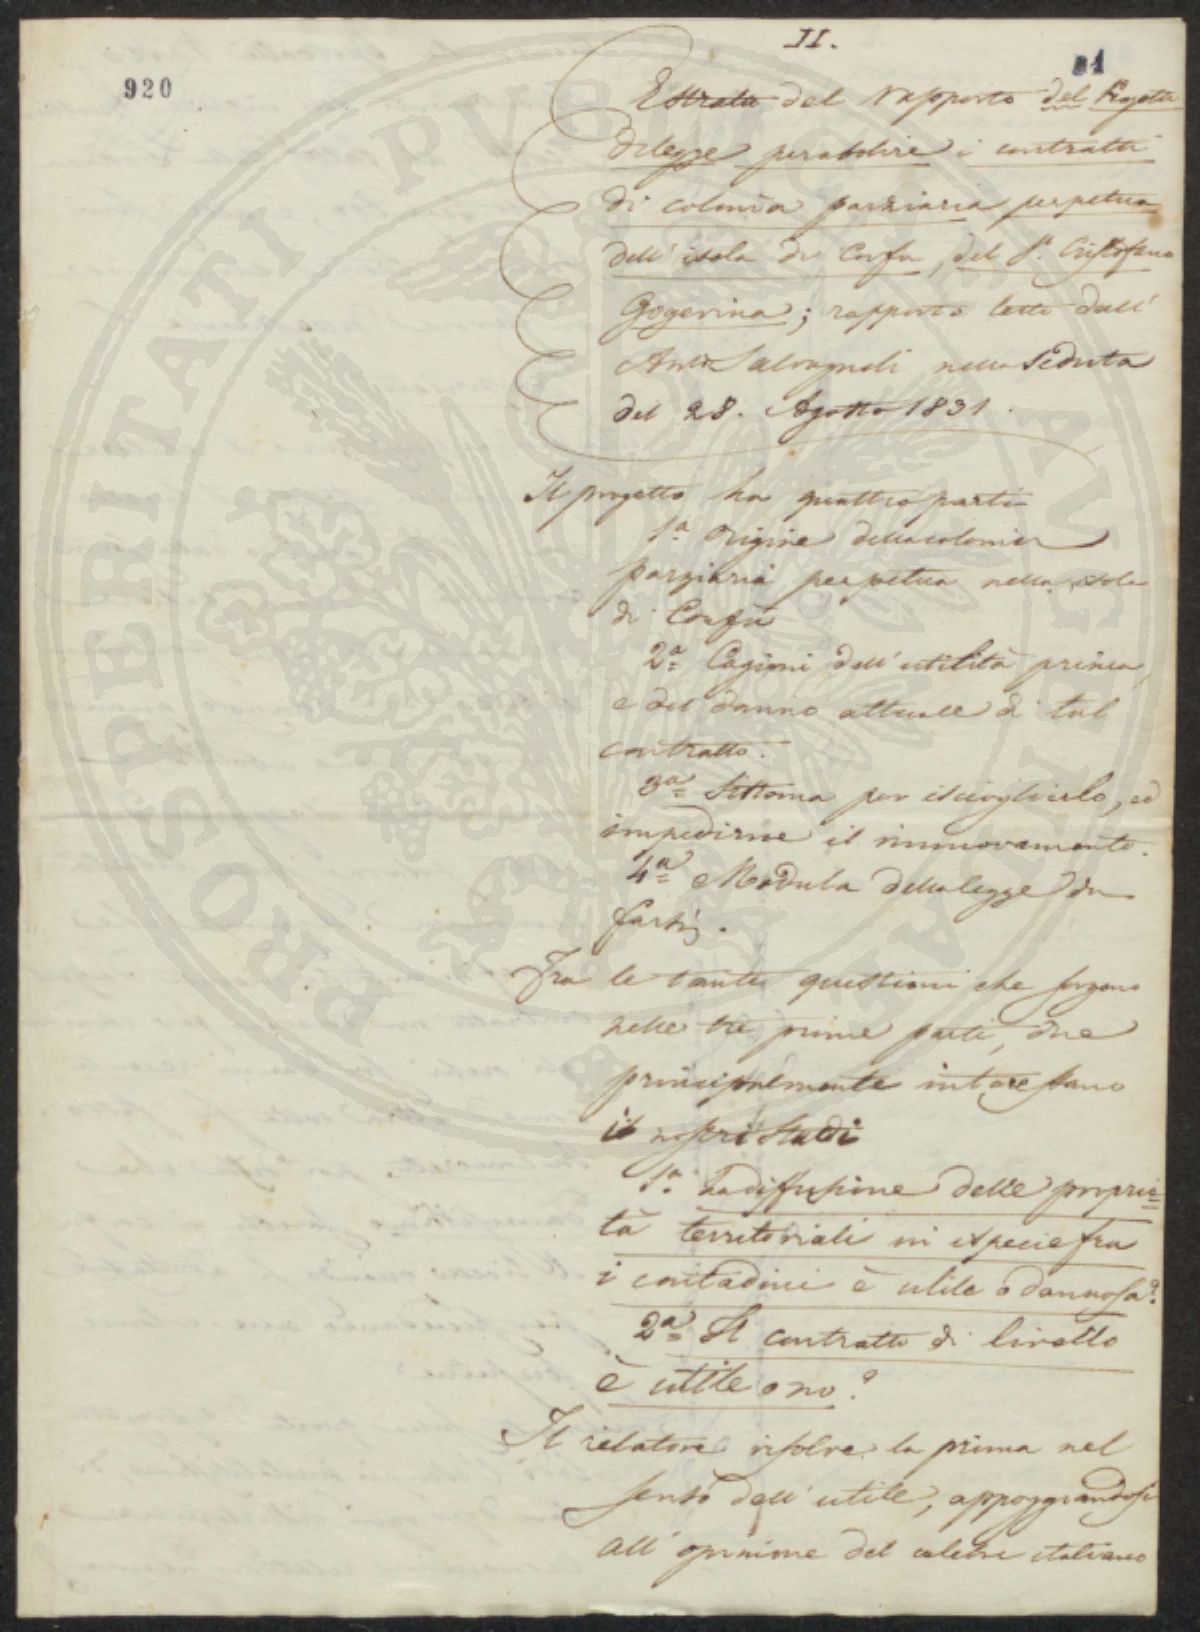 II.
920
31
Estratto del rapporto del Progetto
di legge per abolire i contratti
di colonia parziaria perpetua
dell' isola di Corfu, del Sr. Cristofano
Gogerina; rapporto letto dall'
Avvto Salvagnoli nella Seduta
del 28. Agosto 1831.
Il progetto ha quattro parti
1a. Origine della colonia
parziaria perpetua nella isola
di Corfù
2a Cagioni dell' utilità prima,
e del danno attuale di tal
contratto.
3a Sistema per iscioglierlo, ed
impedirne il rinnovamento.
4a Modula della legge da
farsi.
Fra le tante questioni che sorgono
nelle tre prime parti, due
principalmente interessano
i nostri Studi
1a. La diffusione delle proprie=
tà territoriali in ispecie fra
i contadini è utile o dannosa?
2a Il contratto di livello
è utile o no?
Il relatore risolve la prima nel
senso dell' utile, appoggiandosi
all' opinione del celebre italiano
PROSPERITATI PVBLICAE AVGENDAE